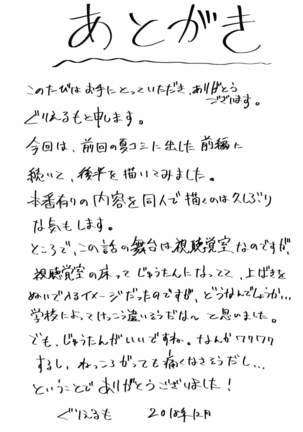 あとがき
このたびはお手にとっていただき、ありがとう
ございます。
ぐりえるもと申します。
今回は、前回の夏コミに出した前編に
続いて、後半を描いてみました。
本番有りの内容を同人で描くのは久しぶり
な気もします。
ところで、この話の舞台は視聴覚室なのですが、
視聴覚室の床って じゅうたんになってて、上ばきを
ぬいで入るイメージだったのですが、どうなんでしょうか…
学校によってけっこう違うそうだな〜 と思いました。
でも、じゅうたんがいいですね。なんかワクワク
するし、ねっころがっても痛くなさそうだし…
ということで ありがとうございました！
ぐりえるも 2018年12月